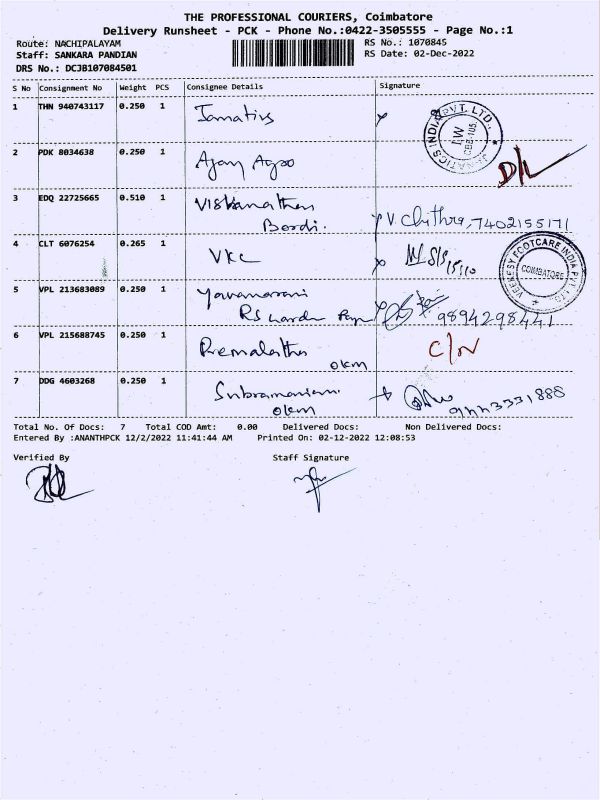 THE PROFESSIONAL COURIERS, Coimbatore
Delivery Runsheet - PCK - Phone No.:0422-3505555 - Page No.:1
Route: NACHIPALAYAM
RS No.: 1070845
Staff: SANKARA PANDIAN
RS Date: 02-Dec-2022
DRS No.: DCJB107084501
S No Consignment No Weight PCS Consignee Details Signature
1 THN 940743117 0.250 1
PVT. LTD.
2 PDK 8034638 0.250 1 Ajay Agro
D/L
3 EDQ 22725665 0.510 1
V. Chithra, 7402155171
4 CLT 6076254 0.265 1 VKC
VEEKESY FOOTCARE INDIA PVT. LTD.
COIMBATORE
5 VPL 213683089 0.250 1
9894298441
6 VPL 215688745 0.250 1 Premalatha
okm
7 DDG 4603268 0.250 1 Subramaniam
okm
Total No. Of Docs: 7 Total COD Amt: 0.00 Delivered Docs: Non Delivered Docs:
Entered By :ANANTHPCK 12/2/2022 11:41:44 AM Printed On: 02-12-2022 12:08:53
Verified By Staff Signature